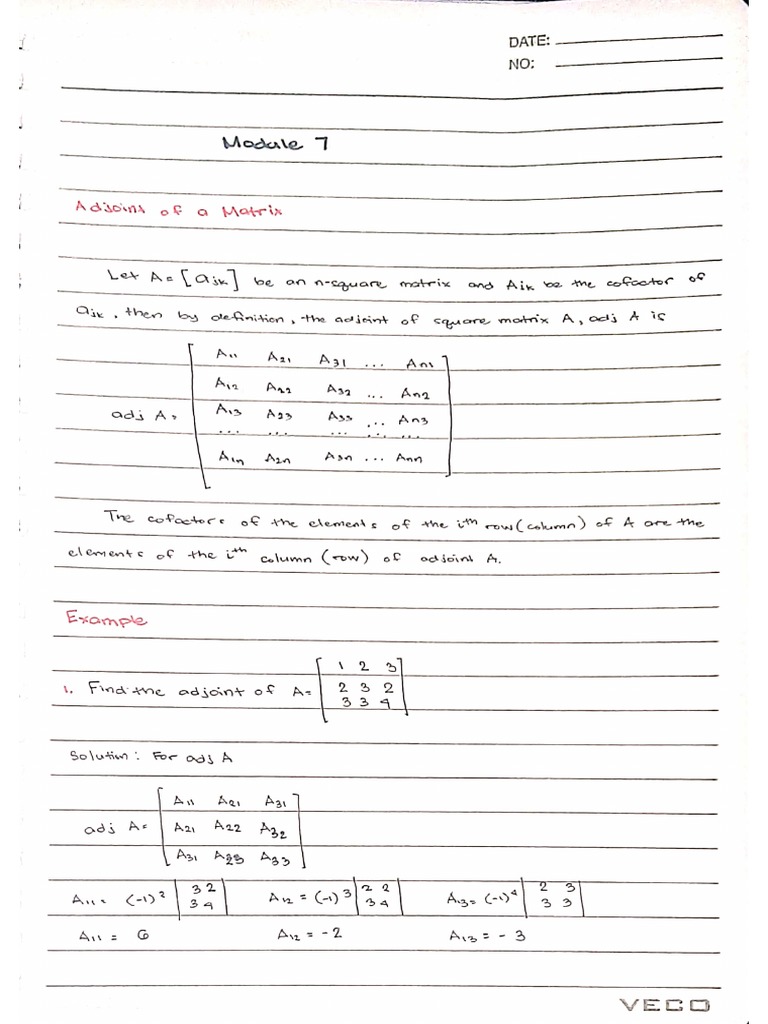 DATE:
NO:
Module 7
Adjoint of a Matrix
Let A = [ajk] be an n-square matrix and Ajk be the cofactor of
ajk, then by definition, the adjoint of square matrix A, adj A is
A11 A21 A31 ... An1
A12 A22 A32 ... An2
adj A = A13 A23 A33 ... An3
... ... ... ... ...
A1n A2n A3n ... Ann
The cofactors of the elements of the ith row (column) of A are the
elements of the ith column (row) of adjoint A.
Example
1 2 3
1. Find the adjoint of A = 2 3 2
3 3 4
Solution: For adj A
A11 A21 A31
adj A = A21 A22 A32
A31 A23 A33
A11 = (-1)2 | 3 2 | A12 = (-1)3 | 2 2 | A13 = (-1)4 | 2 3 |
3 4 3 4 3 3
A11 = 6 A12 = -2 A13 = -3
VECO